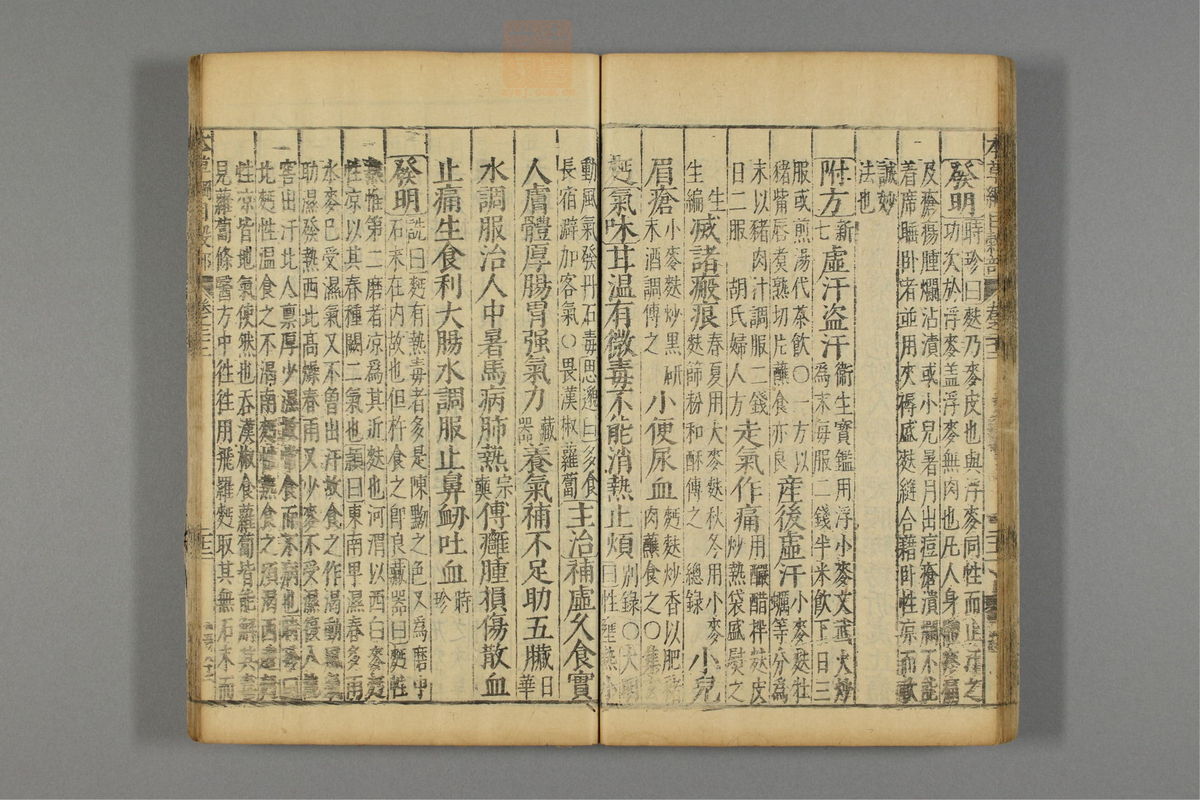 發明時珍曰麩乃麥皮也與浮麥同性而止汗之
功次於浮麥蓋浮麥無肉也凡人身
及瘡瘍腫爛沾漬或小兒暑月出痘瘡潰爛不能
着席睡卧者並用夾褥盛麩縫合藉卧性涼而軟
誠妙
法也
附方新七虛汗盗汗衛生寶鑑用浮小麥文武火炒
為末每服二錢半米飲下日三
服或煎湯代茶飲〇一方以
猪觜唇煮熟切片蘸食亦良產後虛汗小麥麩牡
蠣等分為
末以豬肉汁調服二錢
日二服 胡氏婦人方走氣作痛用釅醋拌麩皮
炒熱袋盛熨之
生生編滅諸瘢痕春夏用大麥麩秋冬用小麥
麩篩粉和酥傅之 總錄小兒
眉瘡小麥麩炒黑研
末酒調傅之小便尿血麪麩炒香以肥豬
肉蘸食之〇集
麪氣味甘温有微毒不能消熱止煩別錄〇大明
曰性壅熱小
動風氣發丹石毒思邈曰多食
長宿澼加客氣〇畏漢椒蘿蔔主治補虛久食實
人膚體厚腸胃强氣力藏器養氣補不足助五臟日華
水調服治人中暑馬病肺熱宗奭傅癰腫損傷散血
止痛生食利大腸水調服止鼻衂吐血時珍
發明詵曰麪有熱毒者多是陳黝之色又為磨中
石末在内故也但杵食之即良藏器曰麪性
惟第二磨者凉為其近麩也河渭以西白麥麪
性凉以其春種闕二氣也頴曰東南卑濕春多雨
水麥已受濕氣又不曾出汗故食之作渴動風氣
助濕發熱西北高燥春雨又少麥不受濕復入
窖出汗北人禀厚少濕
北麪性温食之不渴南麪性熱食之煩渴西邊麪
性凉皆地氣使然也吞漢椒食蘿蔔皆能解其毒
見蘿蔔條醫方中往往用飛羅麪取其無石末而